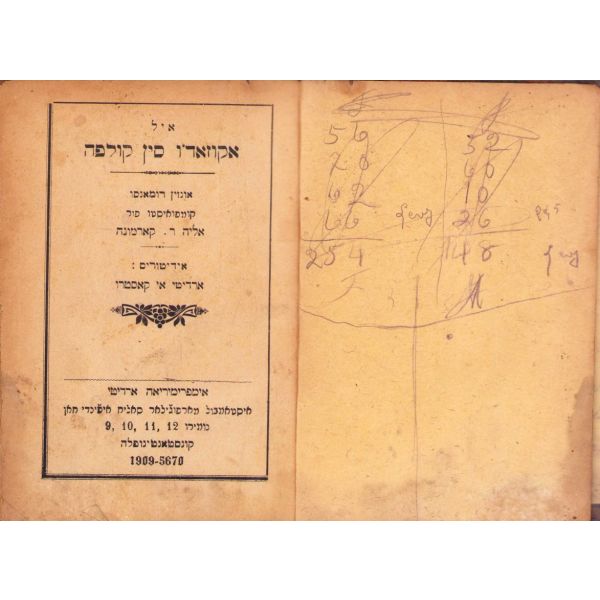 איל
אקוזאד׳ו סין קולפה
אונזין רומאנסו
קומפואיסטו פור
אליה ר. קארמונה
אידיטוריס :
ארדיטי אי קאסטרו
אימפרימיריאה ארדיטי
איסטאמבול מארפוג׳ילאר סאליח איפ׳ינדי חאן
נומירו 12 ,11 ,10 ,9
קונסטאנטינופלה
1909-5670
56 52
78 60
62 10
26
254 148